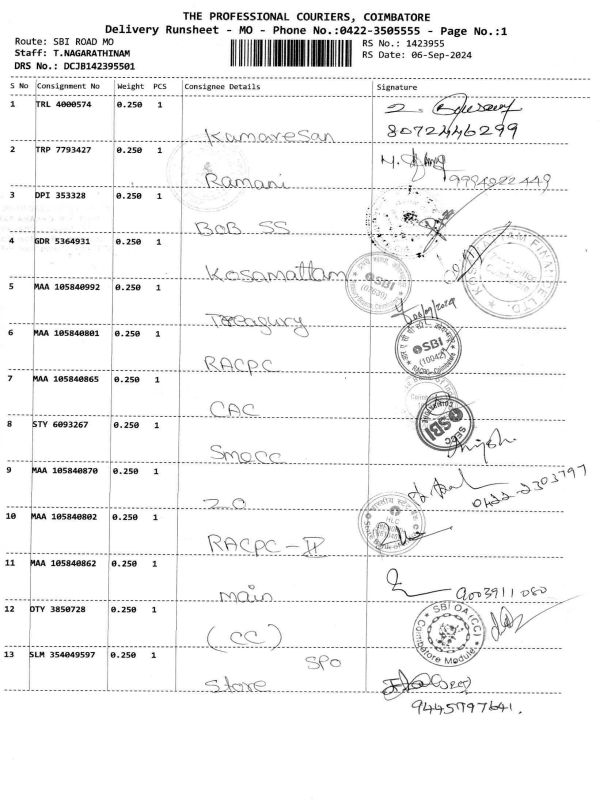 THE PROFESSIONAL COURIERS, COIMBATORE
Delivery Runsheet - MO - Phone No.:0422-3505555 - Page No.:1
Route: SBI ROAD MO
RS No.: 1423955
Staff: T.NAGARATHINAM
RS Date: 06-Sep-2024
DRS No.: DCJB142395501
S No Consignment No Weight PCS Consignee Details Signature
1 TRL 4000574 0.250 1
Kamaresan 8072446299
2 TRP 7793427 0.250 1
Ramani
3 DPI 353328 0.250 1
BOB SS
4 GDR 5364931 0.250 1
Kosamattam
SBI
5 MAA 105840992 0.250 1
Treasury
6 MAA 105840801 0.250 1
SBI
(10042)
RACPC
7 MAA 105840865 0.250 1
CAC
8 STY 6093267 0.250 1
SBI
Smecc
9 MAA 105840870 0.250 1
ZO 0422-2303797
10 MAA 105840802 0.250 1
RACPC-II
11 MAA 105840862 0.250 1
main 9003911080
12 OTY 3850728 0.250 1
SBI OA (CC)
Coimbatore Module
(CC)
13 SLM 354049597 0.250 1
SPO
Store
9445797641.